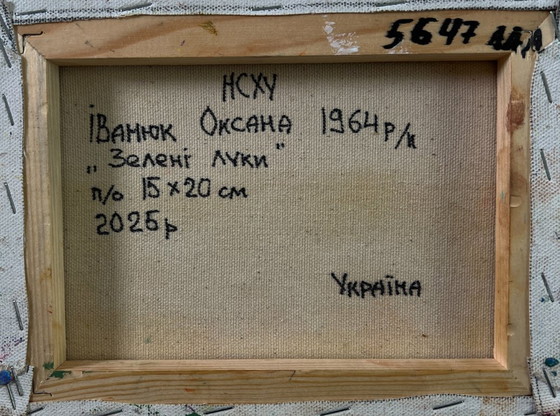 5647
НСХУ
Іванюк Оксана 1964 р/н
„Зелені луки"
п/о 15 х 20 см
2025р
Україна